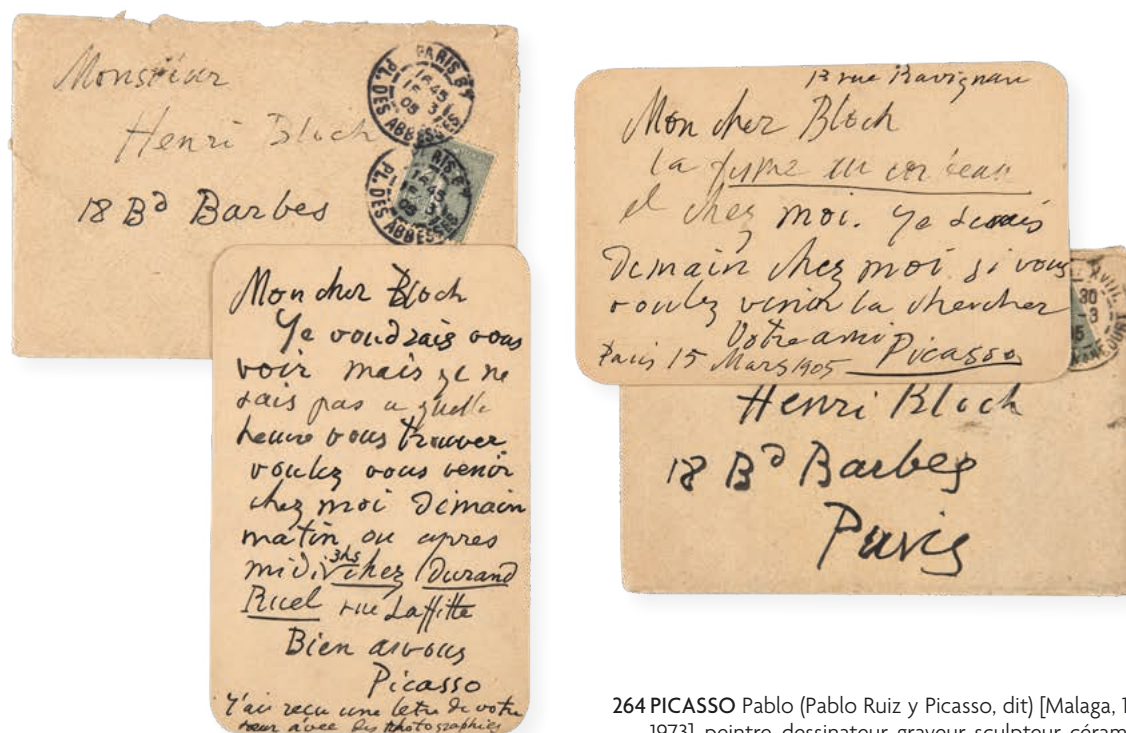 Monsieur
Henri Bloch
18 Bd Barbes
PARIS
PL. DES ABBESSES
16 45
15 3
05
PL. DES ABBESSES
Mon cher Bloch
Ye voudrais vous
voir mais ye ne
sais pas a quelle
heure vous trouver
voulez vous venir
chez moi demain
matin ou apres
midi 3hs chez Durand
Ruel rue Laffitte
Bien a vous
Picasso
Y'ais reçu une letre de votre
seur avec des photographies
13 rue Ravignan
Mon cher Bloch
la femme au corbeau
et chez moi. Ye serais
demain chez moi si vous
voulez venir la chercher
Votre ami
Paris 15 Mars 1905 Picasso
30
-3
Henri Bloch
18 Bd Barbes
Paris
264 PICASSO Pablo (Pablo Ruiz y Picasso, dit) [Malaga, 1
1973] peintre dessinateur graveur sculpteur céram